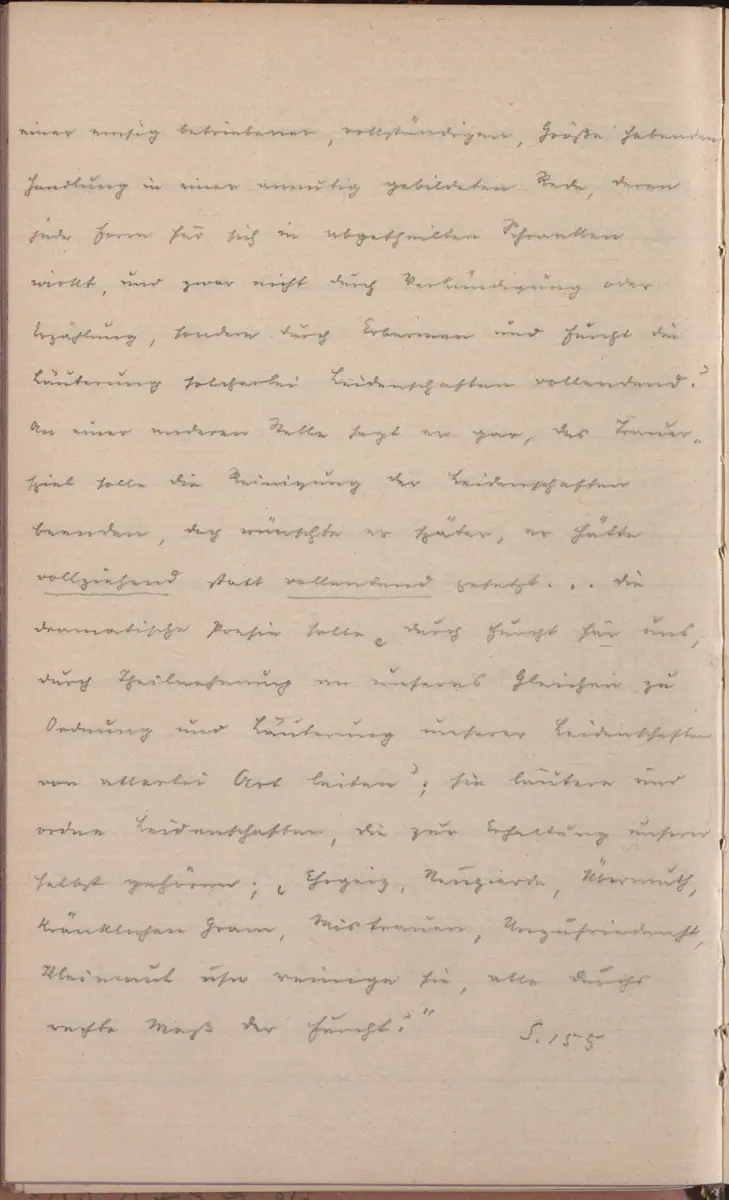 einer emsig betriebenen, vollständigen, Größe habenden
Handlung in einer anmutig gebildeten Rede, deren
jede Form für sich in abgetheilten Schranken
wirkt, und zwar nicht durch Verkündigung oder
Erzählung, sondern durch Erbarmen und Furcht die
Läuterung solcherlei Leidenschaften vollendend.'
An einer anderen Stelle sagt er gar, das Trauer-
spiel solle die Reinigung der Leidenschaften
beenden, doch wünschte er später, er hätte
vollziehend statt vollendend gesetzt... Die
dramatische Poesie solle ‚durch Furcht für uns,
durch Theilnehmung an unseres Gleichen zu
Ordnung und Läuterung unserer Leidenschaften
von allerlei Art leiten'; sie läutere und
ordne Leidenschaften, die zur Erhaltung unserer
selbst gehören; ‚Ehrgeiz, Neugierde, Übermuth,
kränklichen Gram, Mistrauen, Unzufriedenht,
Kleinmut usw reinige sie, alle durchs
rechte Maß der Furcht.'"
S. 155